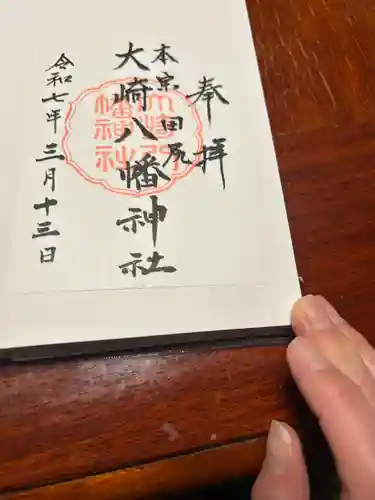 奉拝
本宗田尻
大崎八幡神社
大崎八幡神社
令和七年三月十三日